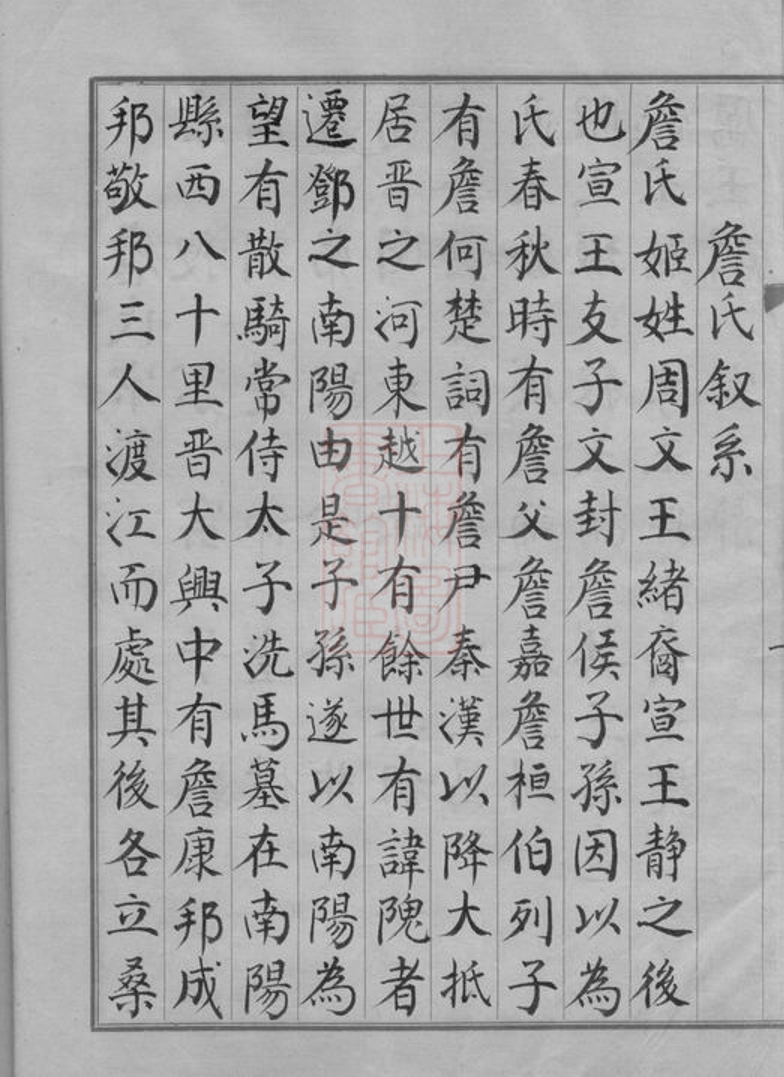 詹氏叙系
詹氏姬姓周文王緒裔宣王靜之後
也宣王支子文封詹侯子孫因以為
氏春秋時有詹父詹嘉詹桓伯列子
有詹何楚詞有詹尹秦漢以降大抵
居晋之河東越十有餘世有諱隗者
遷鄧之南陽由是子孫遂以南陽為
望有散騎常侍太子洗馬墓在南陽
縣西八十里晋大興中有詹康邦成
邦敬邦三人渡江而處其後各立桑